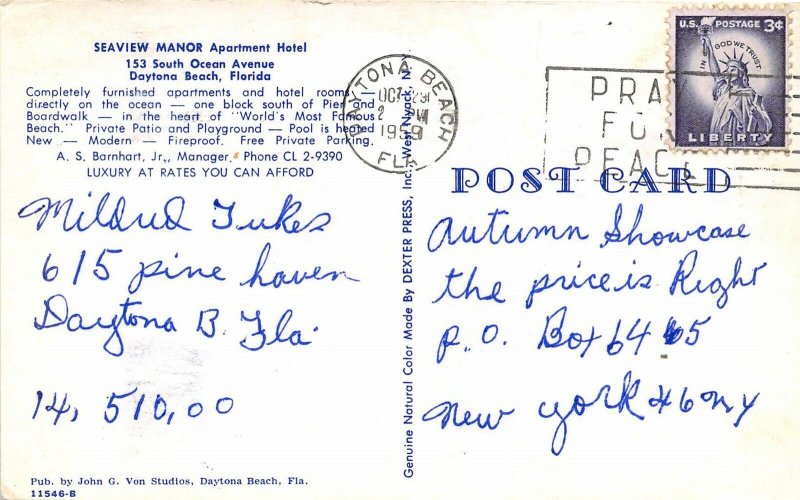 SEAVIEW MANOR Apartment Hotel
153 South Ocean Avenue
Daytona Beach, Florida
Completely furnished apartments and hotel rooms —
directly on the ocean — one block south of Pier and
Boardwalk — in the heart of "World's Most Famous
Beach." Private Patio and Playground — Pool is heated
New — Modern — Fireproof. Free Private Parking.
A. S. Barnhart, Jr., Manager. Phone CL 2-9390
LUXURY AT RATES YOU CAN AFFORD
Mildred Tukes
615 pine haven
Daytona B. Fla.
14, 510,00
Pub. by John G. Von Studios, Daytona Beach, Fla.
11546-B
Genuine Natural Color Made By DEXTER PRESS, Inc., West Nyack, N.
DAYTONA BEACH
OCT 23
2 PM
1959
FLA.
PRAY
FOR
PEACE
U.S. POSTAGE 3¢
IN GOD WE TRUST
LIBERTY
POST CARD
Autumn Showcase
the price is Right
P.O. Box 6465
New York 46 N y